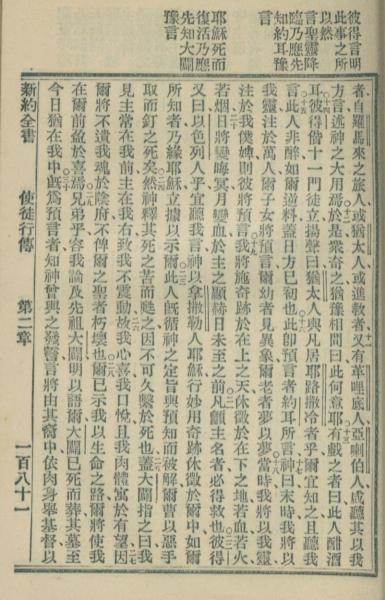 彼得言明
此事之所
以然
言聖靈降
臨乃應先
知約耳豫
言
耶穌死而
復活乃應
先知大闢
豫言
者自羅馬來之旅人、或猶太人、或進教者、又有革哩底人、亞喇伯人、咸聽其以我
方言述神之大用焉、於是衆奇之猶豫、相問曰、此何意耶、有戲之者曰、此人酣酒
耳、彼得偕十一門徒立揚聲曰、猶太人與凡居耶路撒冷者乎、爾宜知之、且聽我
言、此人非醉如爾逆料、蓋日方已初也、此卽預言者約耳所言、神曰、末時我將以
我靈注於萬人、爾子女將預言、爾幼者見異象、爾老者夢以夢、當時我將以我靈
注於我僕婢、則彼將預言、我將施奇跡於在上之天、休徵於在下之地、若血若火
若烟、日將變晦冥、月變血、於主之顯赫日未至之前、凡籲主名者必得救也、彼得
又曰、以色列人乎、宜聽我言、神以拿撒勒人耶穌行妙用奇跡休徵於爾中、如爾
所知者、乃緣耶穌立據以示爾、此人旣循神之定旨與預知而被解、爾曹以惡手
取而釘之死矣、然神釋其死之苦而甦之、因不可久繫於死也、蓋大闢指之曰、我
見主常在我前、主在我右致我不震動、故我心喜、我口悅、且我肉體寓於有望、因
爾將不遺我魂於陰府、不俾爾之聖者朽壞也、爾已示我以生命之路、爾將使我
在爾前盈於喜焉、兄弟乎、容我論及先祖大闢明以語爾、大闢已死而葬、其墓至
今日猶在我中、旣爲預言者、知神曾與之發誓言、將由其裔中依肉身舉基督以
新約全書　使徒行傳　第二章　一百八十一